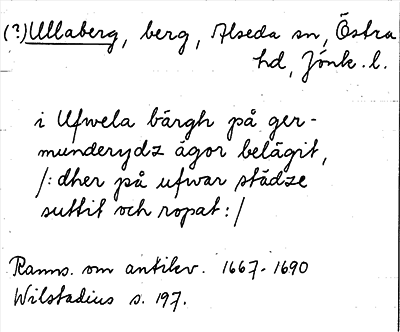 (?) Ullaberg, berg, Alseda sn, Östra
hd, Jönk. l.
i Ufwela bärgh på ger-
munderydz ägor belägit,
/: dher på ufwar städze
suttit och ropat :/
Ranns. om antikv. 1667-1690
Wilstadius s. 197.